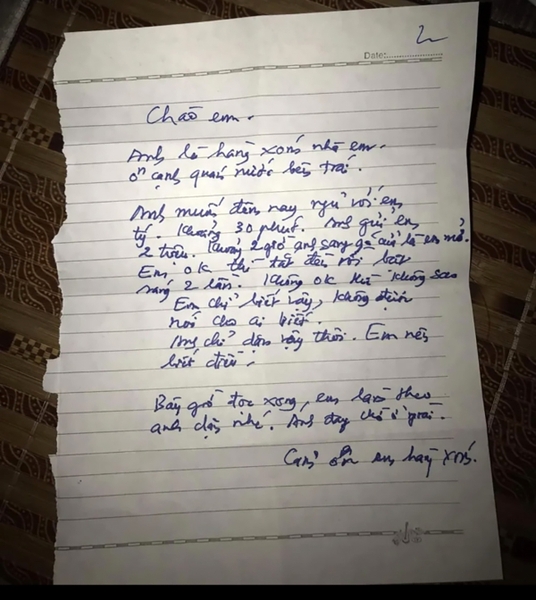 2
Date:
Chào em.
Anh là hàng xóm nhà em.
Ở cạnh quán nước bên trái.
Anh muốn đêm nay ngủ với em
tý. Khoảng 30 phút. Anh gửi em
2 triệu. Khoảng 2 giờ anh sang gõ cửa là em mở.
Em ok thì tắt đèn rồi bật
sáng 2 lần. Không ok thì không sao
Em chỉ biết vậy, không được
nói cho ai biết.
Anh chỉ dặn vậy thôi. Em nên
biết điều.
Bây giờ đọc xong, em làm theo
anh dặn nhé. Anh đây chờ ở
Cảm ơn em hàng xóm.